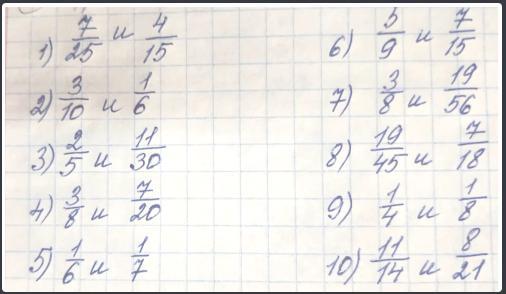 1) 7/25 и 4/15
2) 3/10 и 1/6
3) 2/5 и 11/30
4) 3/8 и 7/20
5) 1/6 и 1/7
6) 5/9 и 7/15
7) 3/8 и 19/56
8) 19/45 и 7/18
9) 1/4 и 1/8
10) 11/14 и 8/21